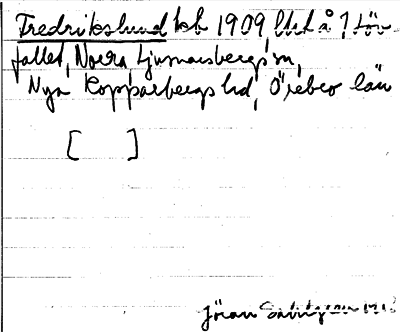 Fredrikslund kb 1909, lht å 1 Löv
fallet, Norra Ljusnarsbergs sn,
Nya Kopparbergs hd, Örebro län
[ ]
Jöran Sahlgren